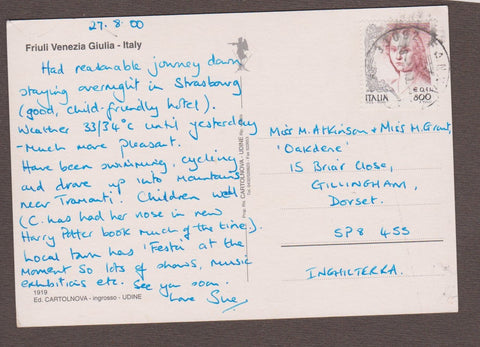 27.8.00
Friuli Venezia Giulia - Italy
Had reasonable journey down
staying overnight in Strasbourg
(good, child-friendly hotel).
Weather 33/34°C until yesterday
- Much more pleasant.
Have been swimming, cycling,
and drove up into Mountains
near Tramonti. Children well.
(C. has had her nose in new
Harry Potter book much of the time).
Local town has 'Festa' at the
moment so lots of shows, music
exhibitions etc. See you soon.
Love Sue
1919
Ed. CARTOLNOVA - ingrosso - UDINE
Prop. Ris. CARTOLNOVA - UDINE
ITALIA
800
Miss M. Atkinson & Miss M. Grant,
'Oakdene'
15 Briar Close,
GILLINGHAM,
Dorset.
SP8 4SS
INGHILTERRA.